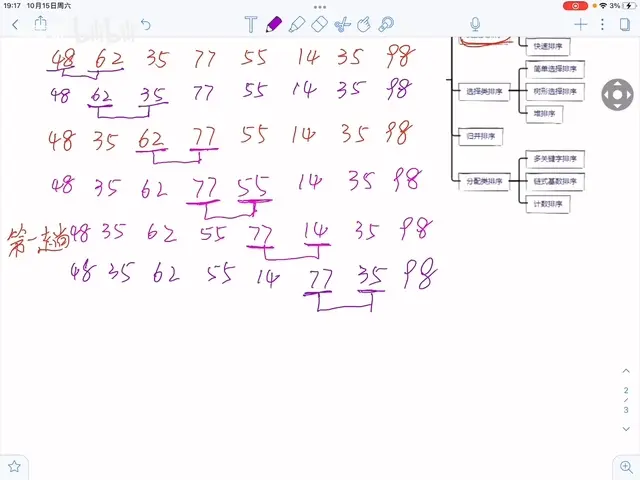 19:17 10月15日周六
3%
bilibili
48 62 35 77 55 14 35 98
48 62 35 77 55 14 35 98
48 35 62 77 55 14 35 98
48 35 62 77 55 14 35 98
第一趟 48 35 62 55 77 14 35 98
48 35 62 55 14 77 35 98
快速排序
选择类排序
简单选择排序
树形选择排序
堆排序
归并排序
分配类排序
多关键字排序
链式基数排序
计数排序
2
/
3